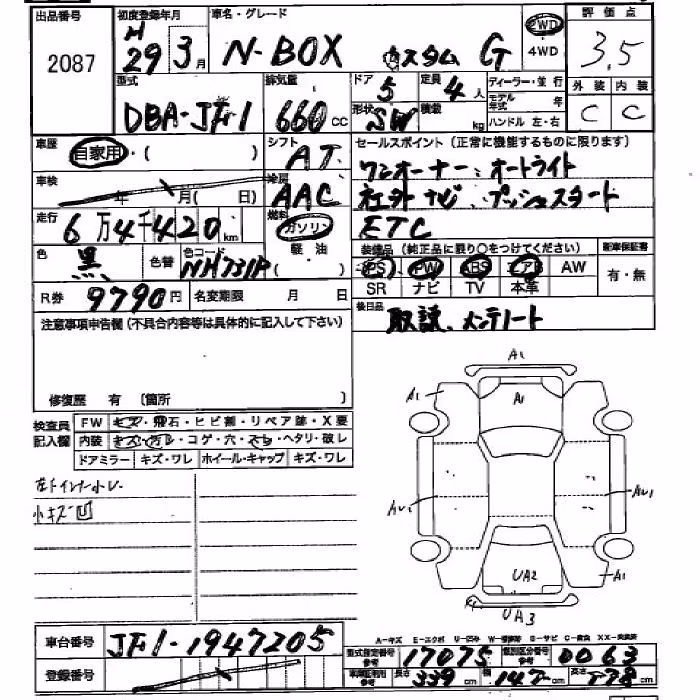 出品番号 初度登録年月 車名・グレード 2WD 評価点
2087 H29 3月 N-BOX カスタム G 4WD 3.5
型式 排気量 ドア 定員 ディーラー・並行 外装 内装
DBA-JF1 660cc 5 4人 モデル年式 年 C C
形状 SW 積載 kg ハンドル 左・右
車歴 自家用・( ) シフト AT セールスポイント(正常に機能するものに限ります)
ワンオーナー・オートライト
車検 年 月( 日) 冷房 AAC 社外ナビ・プッシュスタート
走行 6万4千420km 燃料 ガソリン ETC
軽油
色 黒 色替 色コード NH731P ( )
装備品(純正品に限り○をつけてください) 新車保証書
PS PW ABS エアB AW 有・無
SR ナビ TV 本革
R券 9790円 名変期限 月 日
後日品 取説、メンテノート
注意事項申告欄(不具合内容等は具体的に記入して下さい)
修復歴 有 (箇所 )
検査員記入欄 FW キズ・飛石・ヒビ割・リペア跡・X要
内装 キズ・汚レ・コゲ・穴・スレ・ヘタリ・破レ
ドアミラー キズ・ワレ ホイール・キャップ キズ・ワレ
小キズ凹
A1
A1 A1
AU1
A1
UA2
UA3
A-キズ E-エクボ U-凹み W-補修跡 S-サビ C-腐食 XX-交換済
車台番号 JF1-1947205 型式指定番号 参考 17075 類別区分番号 参考 0063
登録番号 長さ 339cm 幅 147cm 高さ 178cm